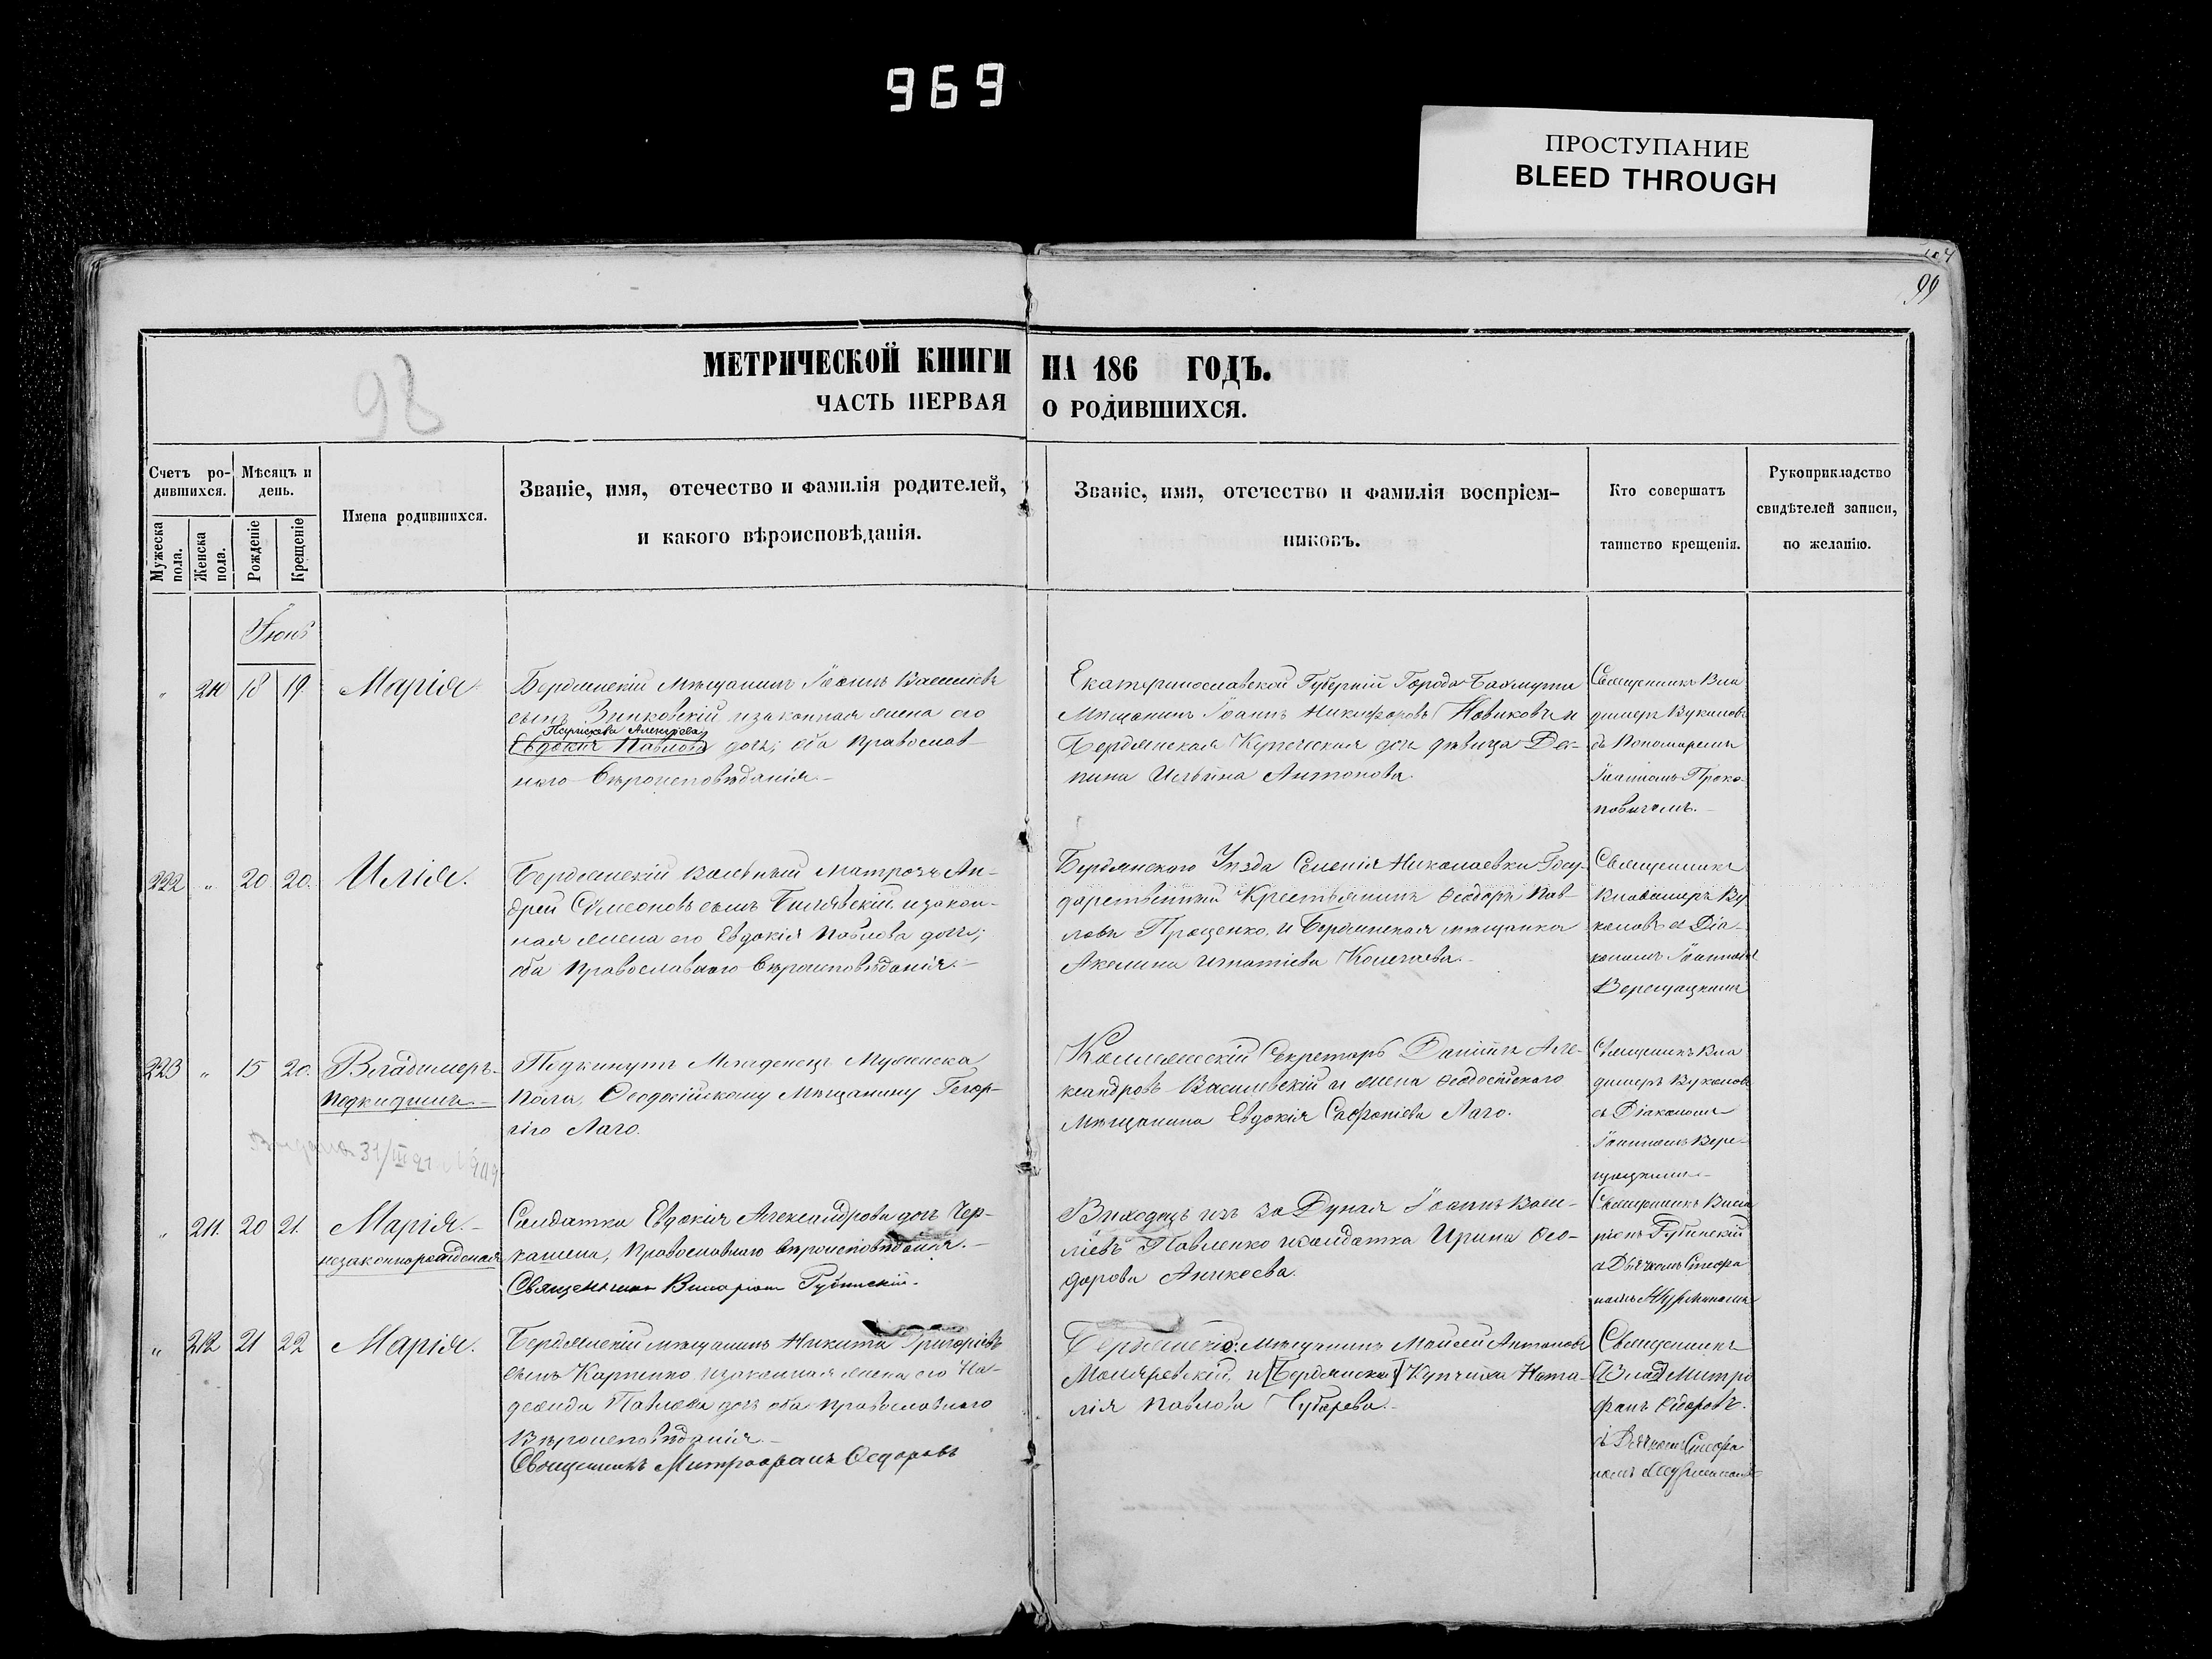 969
ПРОСТУПАНИЕ
BLEED THROUGH
99
98
МЕТРИЧЕСКОЙ КНИГИ НА 186 ГОДЪ.
ЧАСТЬ ПЕРВАЯ О РОДИВШИХСЯ.
Счетъ ро-
дившихся.
Мужеска пола.
Женска пола.
Мѣсяцъ и
день.
Рожденіе
Крещеніе
Имена родившихся.
Званіе, имя, отечество и фамилія родителей,
и какого вѣроисповѣданія.
Званіе, имя, отечество и фамилія воспріем-
никовъ.
Кто совершатъ
таинство крещенія.
Рукоприкладство
свидѣтелей записи,
по желанію.
Іюнь
„ 210 18 19. Марія
Бердянскій мѣщанинъ Іоаннъ Василіевъ
сынъ Зинковскій и законная жена его
Параскева
Евдокія Павлова дочь; оба православ-
наго вѣроисповѣданія.-
Екатеринославской Губерніи Города Бахмута
Мѣщанинъ Іоаннъ Никифоровъ Новиковъ и
Бердянская Купеческая дочь дѣвица Дес-
пина Ильина Антонова.
Священникъ Вла
димеръ Вукановъ
съ Пономаремъ
Іоанномъ Проко-
повичемъ.-
222 „ 20 20. Илія.
Бердянскій вольный матрозъ Ан-
дрей Сѵмеоновъ сынъ Билявскій и закон-
ная жена его Евдокія Павлова дочь;
оба Православнаго вѣроисповѣданія.-
Бердянскаго Уѣзда Селенія Николаевки Госу-
дарственный Крестьянинъ Ѳеодоръ Пав-
ловъ Проценко, и Бердянская мѣщанка
Акелина Игнатіева
Священникъ
Владимеръ Ву
кановъ съ Діа-
кономъ Іоанномъ
Верещацкимъ
223 „ 15 20. Владимеръ.
подкидышъ.-
Подкинутъ Младенецъ Мужеска
Пола, Ѳеодосійскому Мѣщанину Геор-
гію Лаго.
Коллежскій Секретарь Даніилъ Але-
ксандровъ Василевскій и жена Ѳеодосійскаго
Мѣщанина Евдокія Сафроніева Лаго.
Священникъ Вла
димеръ Вукановъ
съ Діакономъ
Іоанномъ Вере-
щацкимъ.-
31/III
„ 211. 20 21. Марія.-
незаконнорожденная
Солдатка Евдокія Александрова дочь Чер-
кашена, Православнаго вѣроисповѣданія.-
Священникъ Виларіонъ Губинскій.
Виходецъ изъ за Дуная Іоаннъ Васи-
ліевъ Павленко и солдатка Ирина Ѳео-
дорова Аникеева.
Священникъ Вила
ріонъ Губинскій
съ Дьячкомъ Стефа
номъ
„ 212 21 22 Марія.
Бердянскій мѣщанинъ Никита Григоріевъ
сынъ Карпенко и законная жена его На-
дежда Павлова дочь оба православнаго
вѣроисповѣданія.-
Священникъ Митрофанъ Ѳедоровъ
Бердянскій Мѣщанинъ Моисей Антоновъ
и [Бердянска] Купчиха Ната-
лія Павлова Губарева.-
Священникъ
[Влад] Митро
фанъ Ѳедоровъ.
съ Дьячкомъ Стефа
номъ